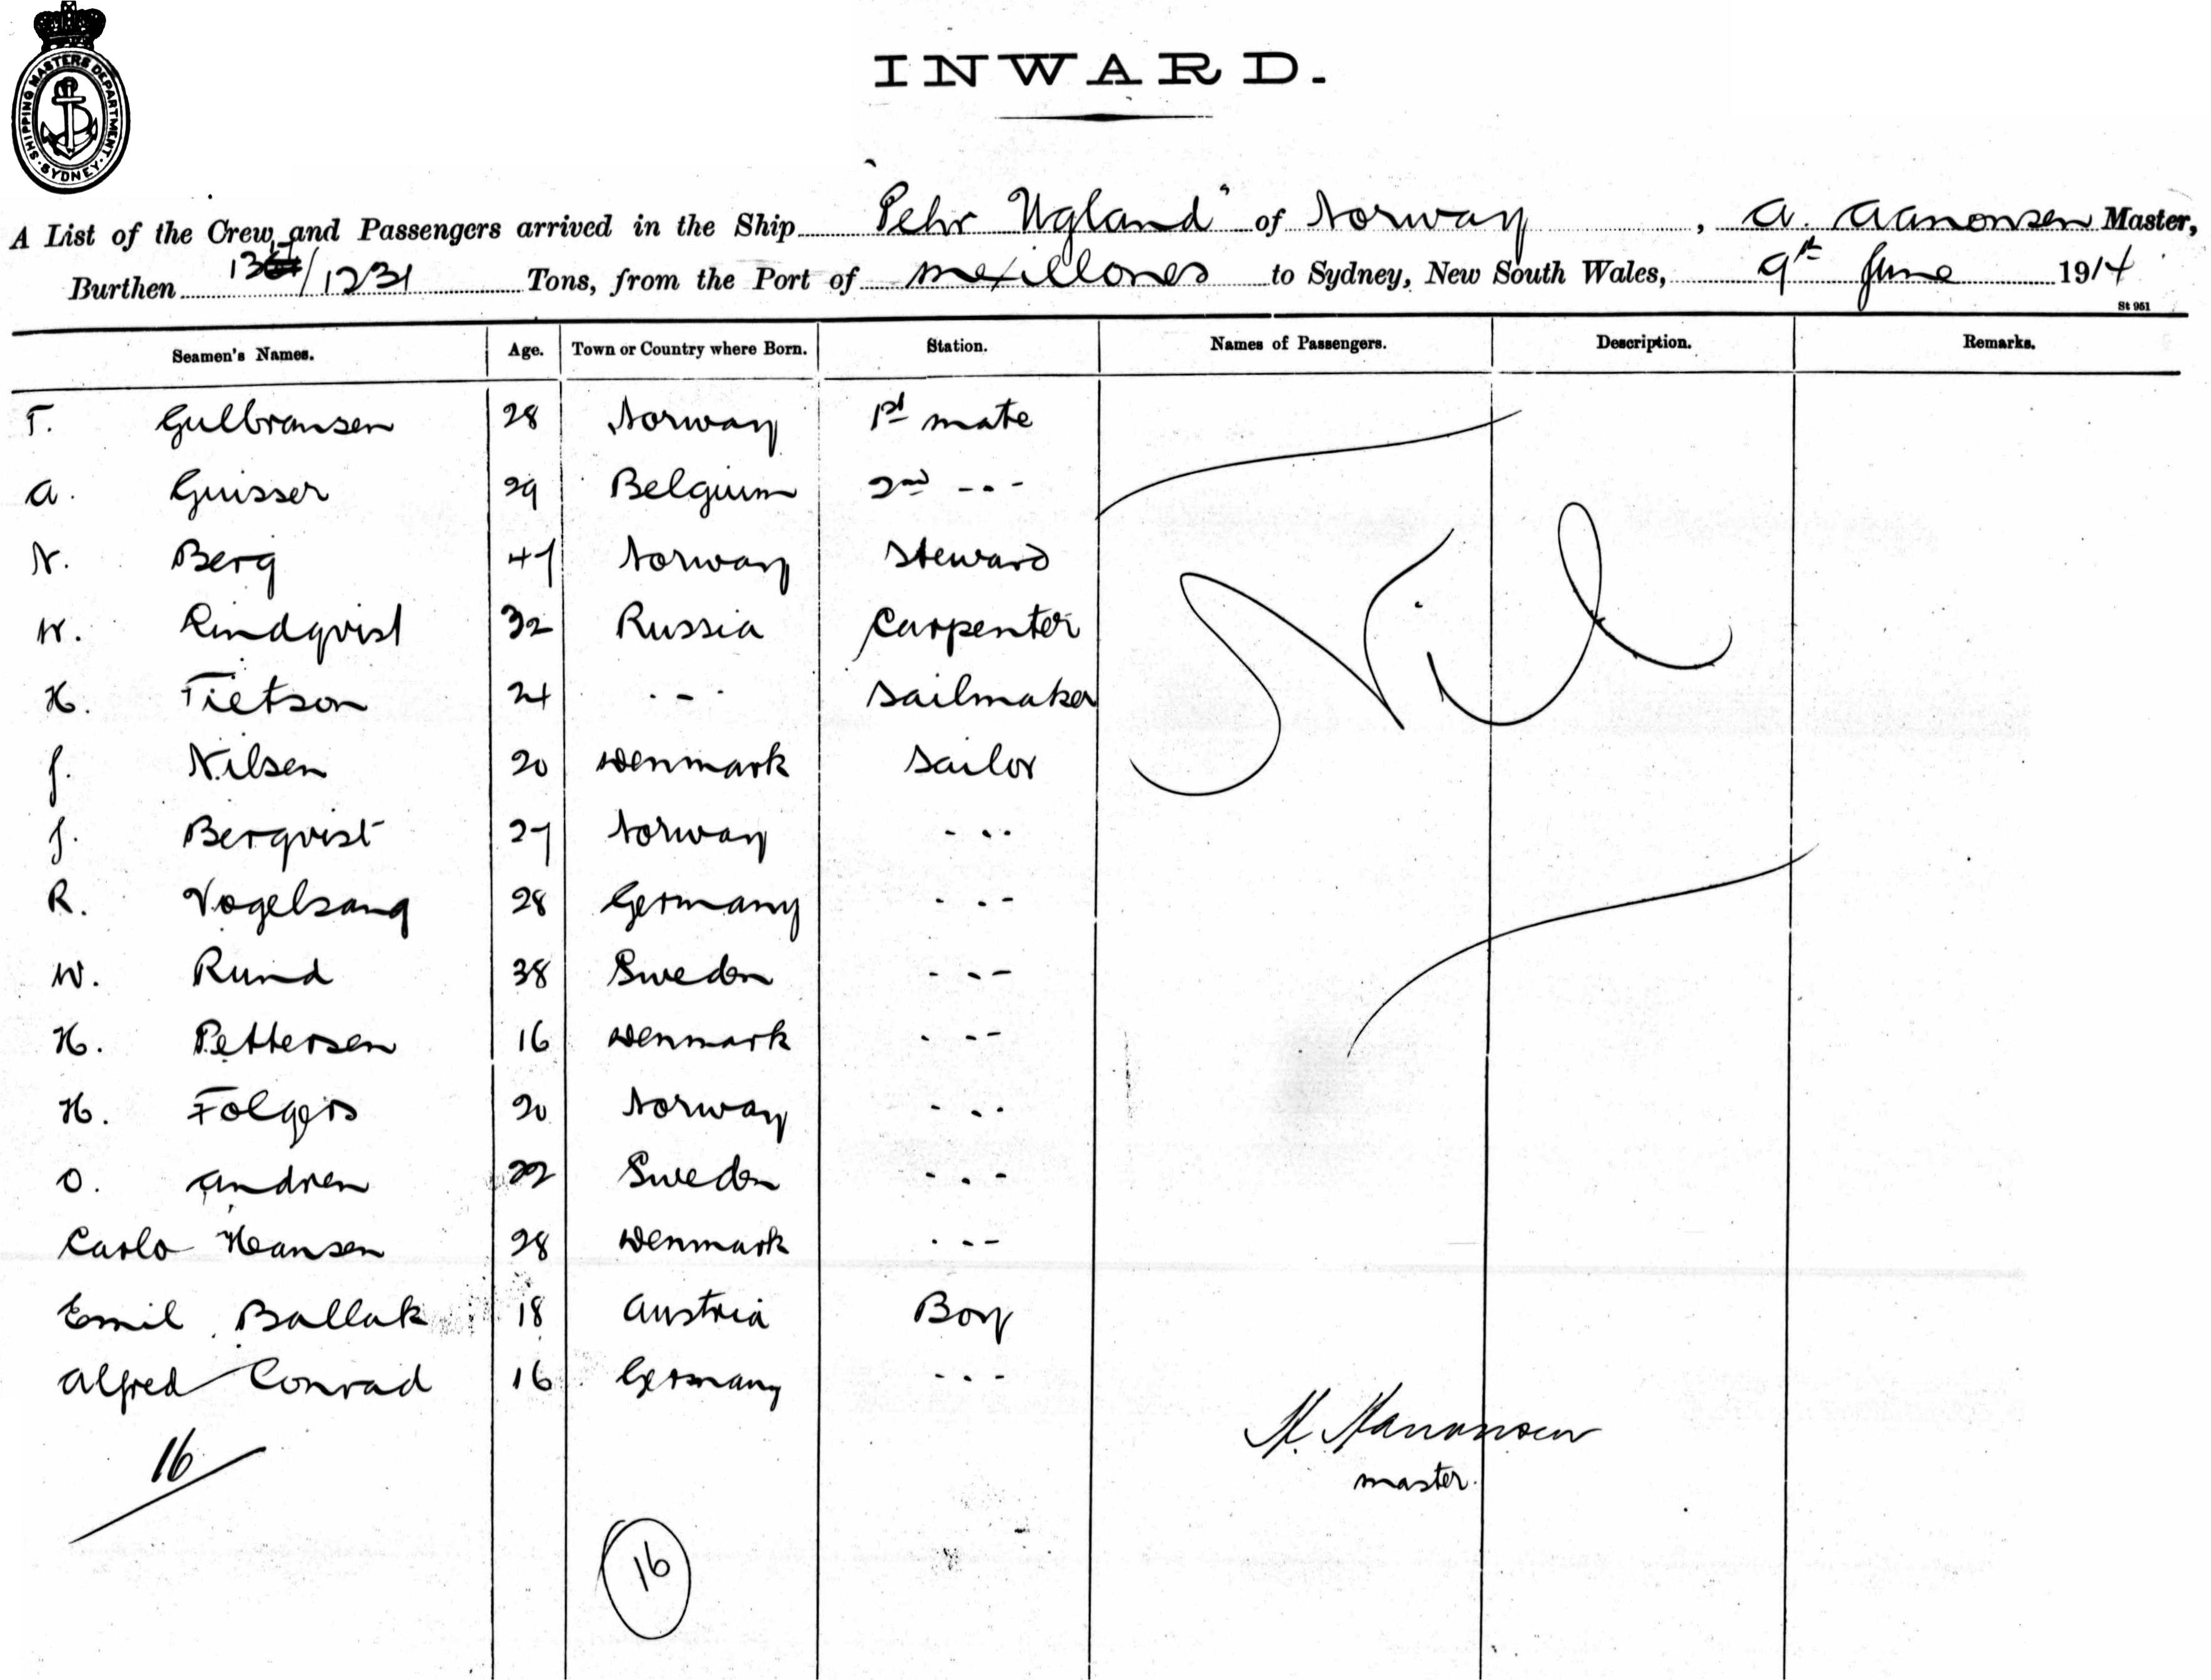 SHIPPING MASTERS DEPARTMENT. SYDNEY.
INWARD.
A List of the Crew and Passengers arrived in the Ship "Pehr Ugland" of Norway, A. Aanonsen Master,
Burthen /1231 Tons, from the Port of Mexillones to Sydney, New South Wales, 9th June 1914
St 951
Seamen's Names. Age. Town or Country where Born. Station. Names of Passengers. Description. Remarks.
T. Gulbransen 28 Norway 1st mate
A. Guisser 29 Belgium 2nd - - -
N. Berg 47 Norway Steward
W. Lindqvist 32 Russia Carpenter
H. Tietson 24 - - - Sailmaker
Nil
J. Nilsen 20 Denmark Sailor
J. Berqvist 27 Norway - - -
R. Vogelsang 28 Germany - - -
W. Rund 38 Sweden - - -
H. Pettersen 16 Denmark - - -
H. Folgers 20 Norway - - -
O. Andren 22 Sweden - - -
Carlo Hansen 28 Denmark - - -
Emil Ballak 18 Austria Boy
Alfred Conrad 16 Germany - - -
A. Aanonsen
master.
16
16